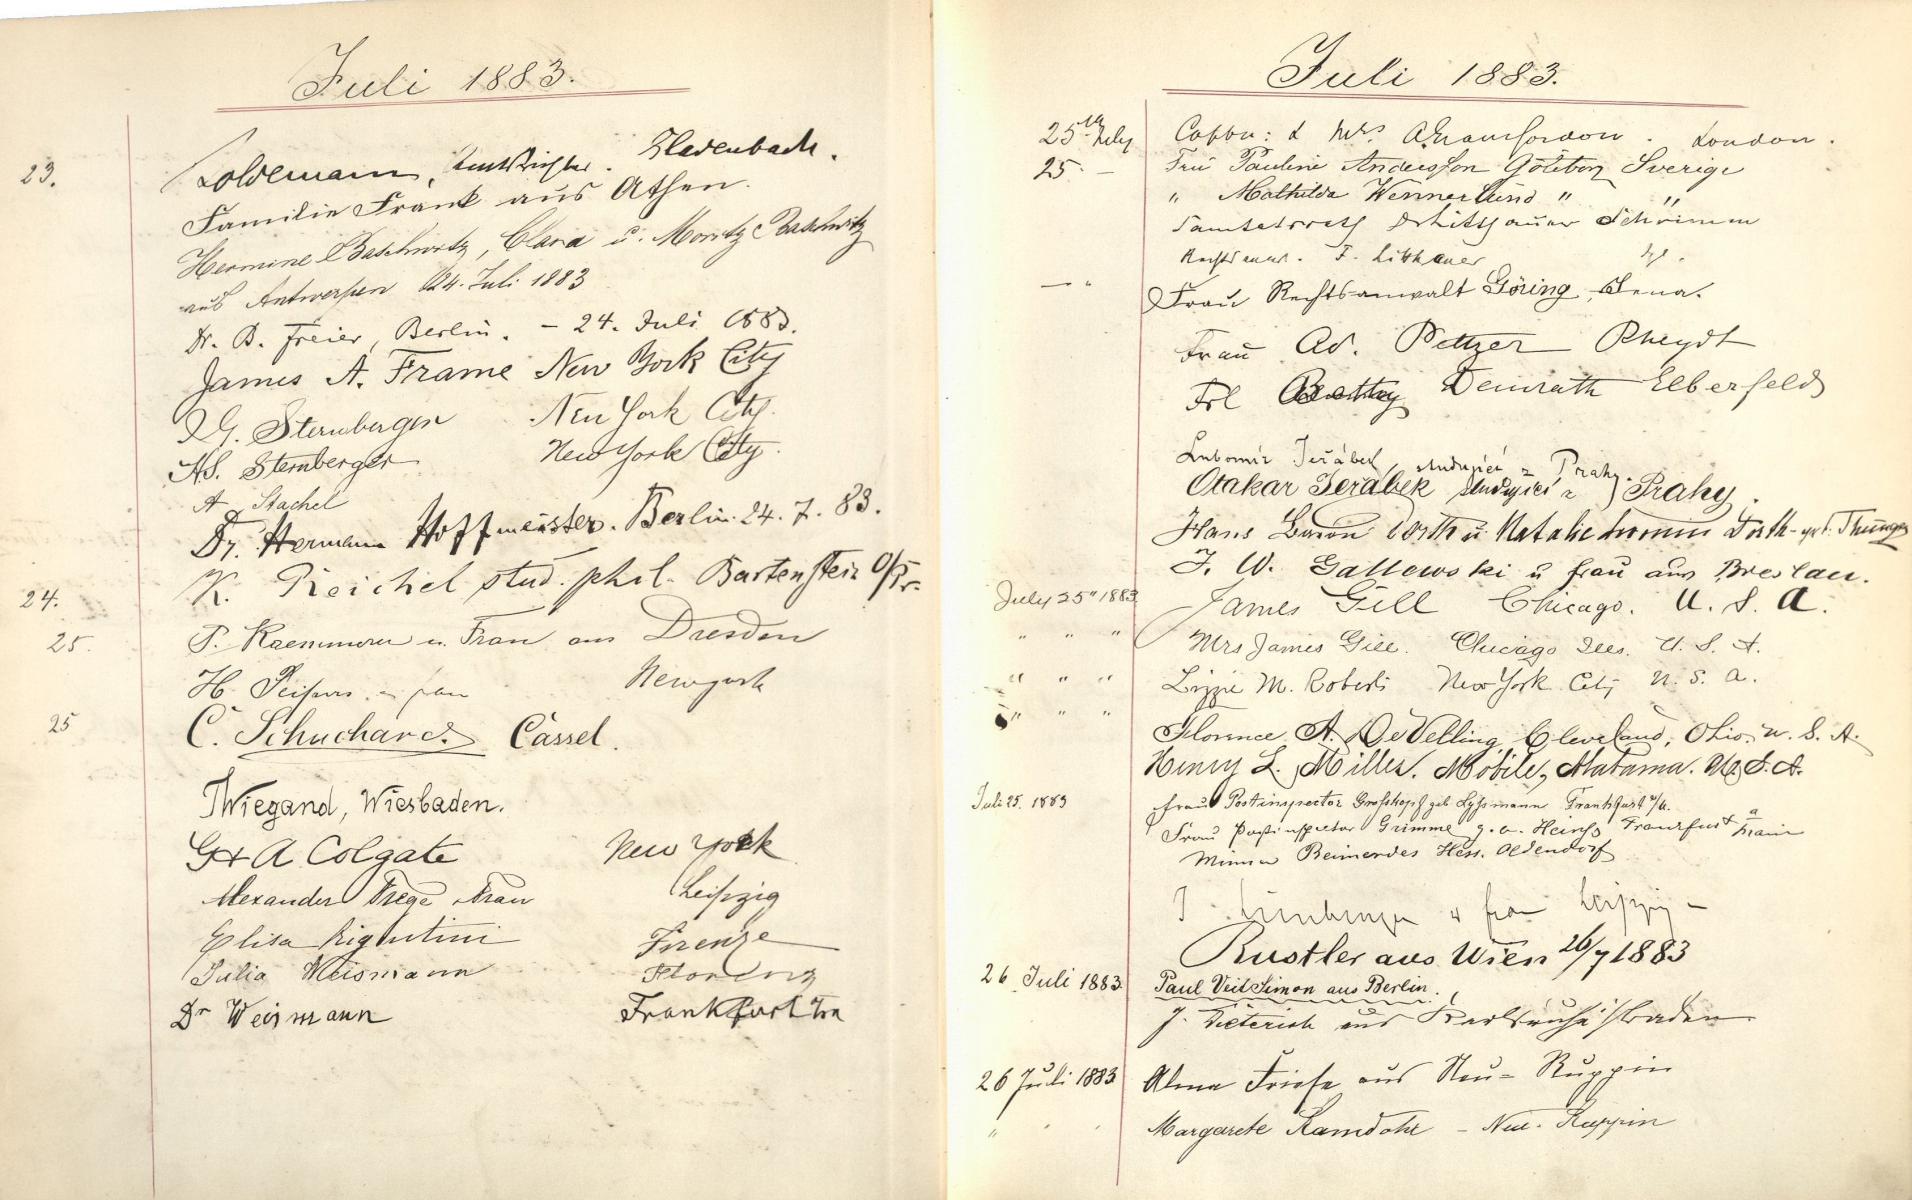 Juli 1883.
23. Amtsrichter. Gladenbach.
Familie Frank aus Athen.
Hermine Baschwitz, Clara u. Moritz Baschwitz
aus Antwerpen 24. Juli 1883
Dr. B. Freier, Berlin. – 24. Juli 1883.
James A. Frame New York City
G. Sternberger New York City.
H.S. Sternberger New York City.
A Stachel
Dr. Hermann Hoffmeister. Berlin 24. 7. 83.
24. K. Reichel stud. phil. Bartenstein O/Pr.
25. P. Kaemmerer u. Frau aus Dresden
H. u frau Newyork
25 C. Schuchard Cassel.
Wiegand, Wiesbaden.
G & A Colgate New York
Alexander Frege Frau Leipzig
Elisa Rigutini Firenze
Julia Weismann Florenz
Dr Weismann Frankfurt
Juli 1883.
25th July & Mrs London.
25. – Frú Pauline Andersson Göteborg Sverige
" Mathilda Wennerlund " "
Schrimm
F. Litthauer
— " Frau Rechtsanwalt Göring, Jena.
Frau Ad. Peltzer Rheydt
Frl Betty Demrath Elberfeld
Lubomir Jeřábek, studující z Prahy.
Otakar Jeřábek studující z Prahy.
Hans u. Natalie
J. W. Gallewski u frau aus Breslau.
July 25" 1883 James Gill Chicago. U. S. A.
" " " Mrs James Gill. Chicago Ills. U. S. A.
" " " Lizzie M. Roberts New York City U. S. A.
" " " Florence A. DeVelling, Cleveland, Ohio. U. S. A.
Henry L. Miller. Mobile, Alabama. U. S. A.
Juli 25. 1883 Frau Postinspector Grosskopf geb Frankfurt a/M.
Frau Postinspector Grimme Frankfurt a Main
Minna Beimerdes Hess. Oldendorf
u frau Leipzig –
Rustler aus Wien 26/7 1883
26 Juli 1883. Paul Veit Simon aus Berlin.
J. Dieterich aus Karlsruhe / Baden
26 Juli 1883 Alma Friese aus Neu-Ruppin
" " " Margarete Ramdohr – Neu-Ruppin